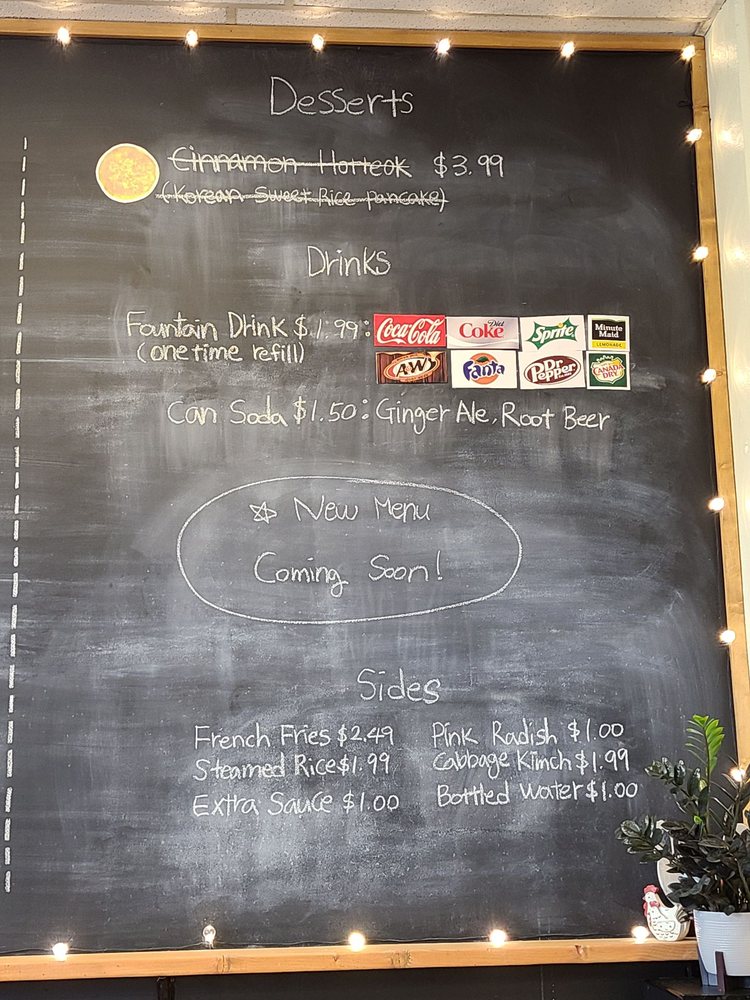 Desserts
Cinnamon Hotteok $3.99
(Korean Sweet Rice pancake)
Drinks
Fountain Drink $1.99:
(one time refill)
Coca-Cola Diet Coke Sprite Minute Maid LEMONADE
A&W Fanta Dr Pepper CANADA DRY
Can Soda $1.50: Ginger Ale, Root Beer
☆ New Menu
Coming Soon!
Sides
French Fries $2.49 Pink Radish $1.00
Steamed Rice $1.99 Cabbage Kimch $1.99
Extra Sauce $1.00 Bottled Water $1.00